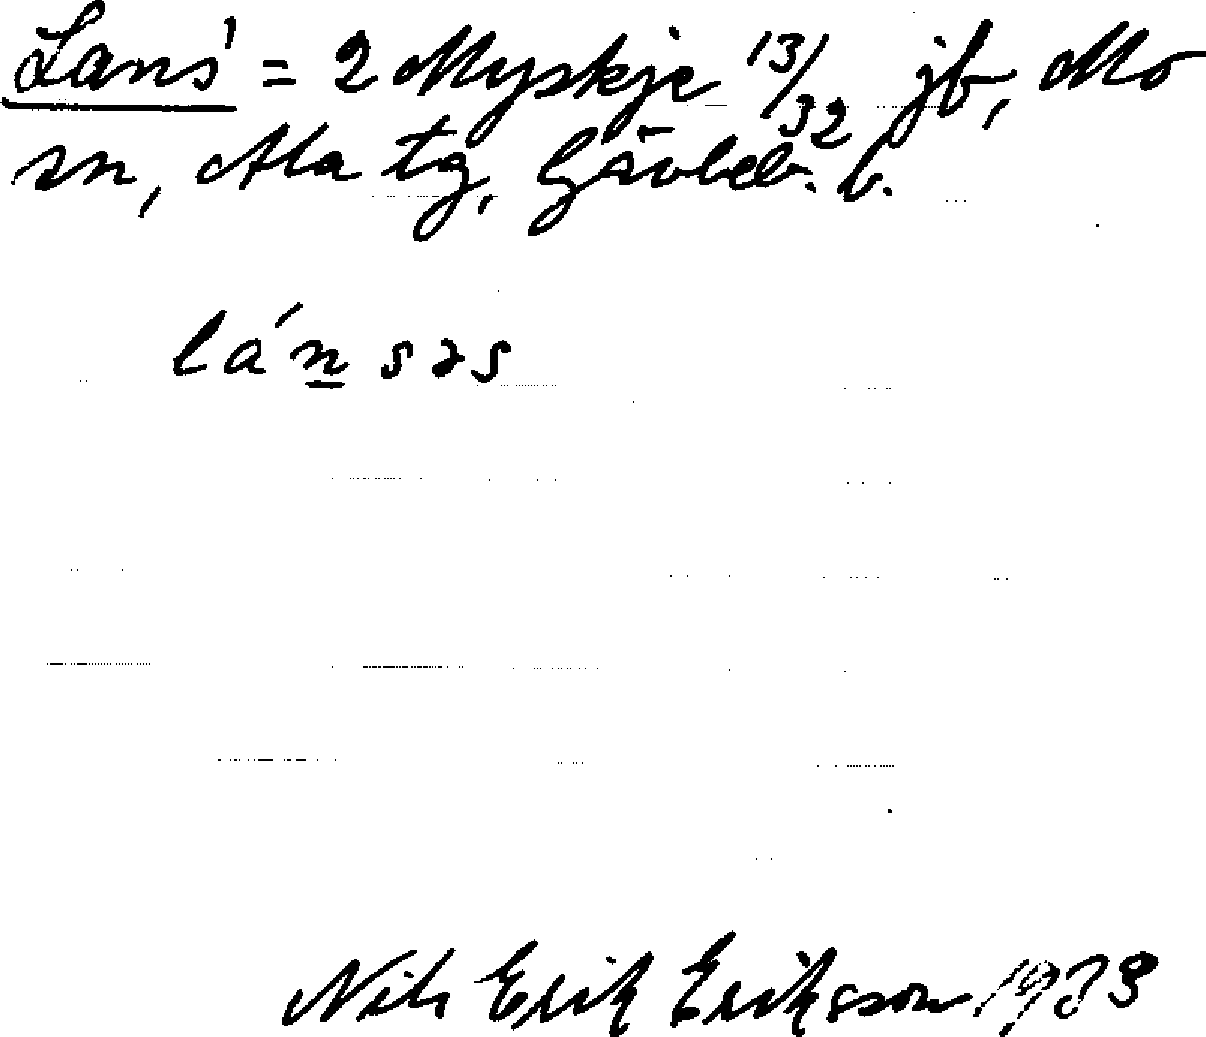 Lans' = 2 Myskje 13/32 jb, Mo
sn, Ala tg, Gävleb. l.
lá´n̲ səs
Nils Erik Eriksson 1983